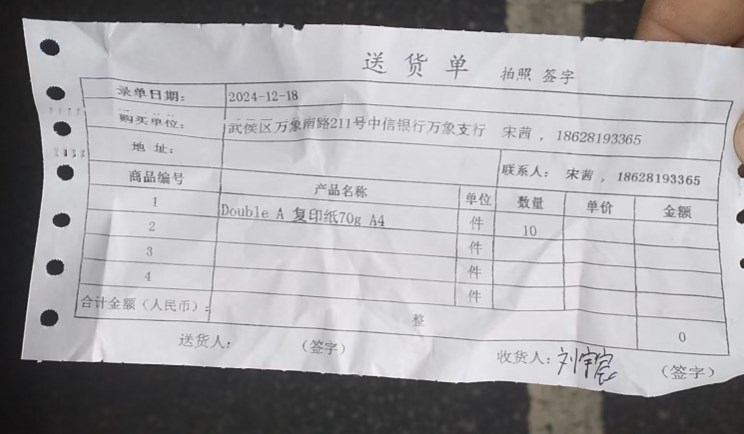 送货单 拍照 签字
录单日期: 2024-12-18
购买单位: 武侯区万象南路211号中信银行万象支行 宋茜，18628193365
地 址: 联系人: 宋茜，18628193365
商品编号 产品名称 单位 数量 单价 金额
1 Double A 复印纸70g A4 件 10
2 件
3 件
4 件
合计金额（人民币）: 整 0
送货人: （签字） 收货人: （签字）